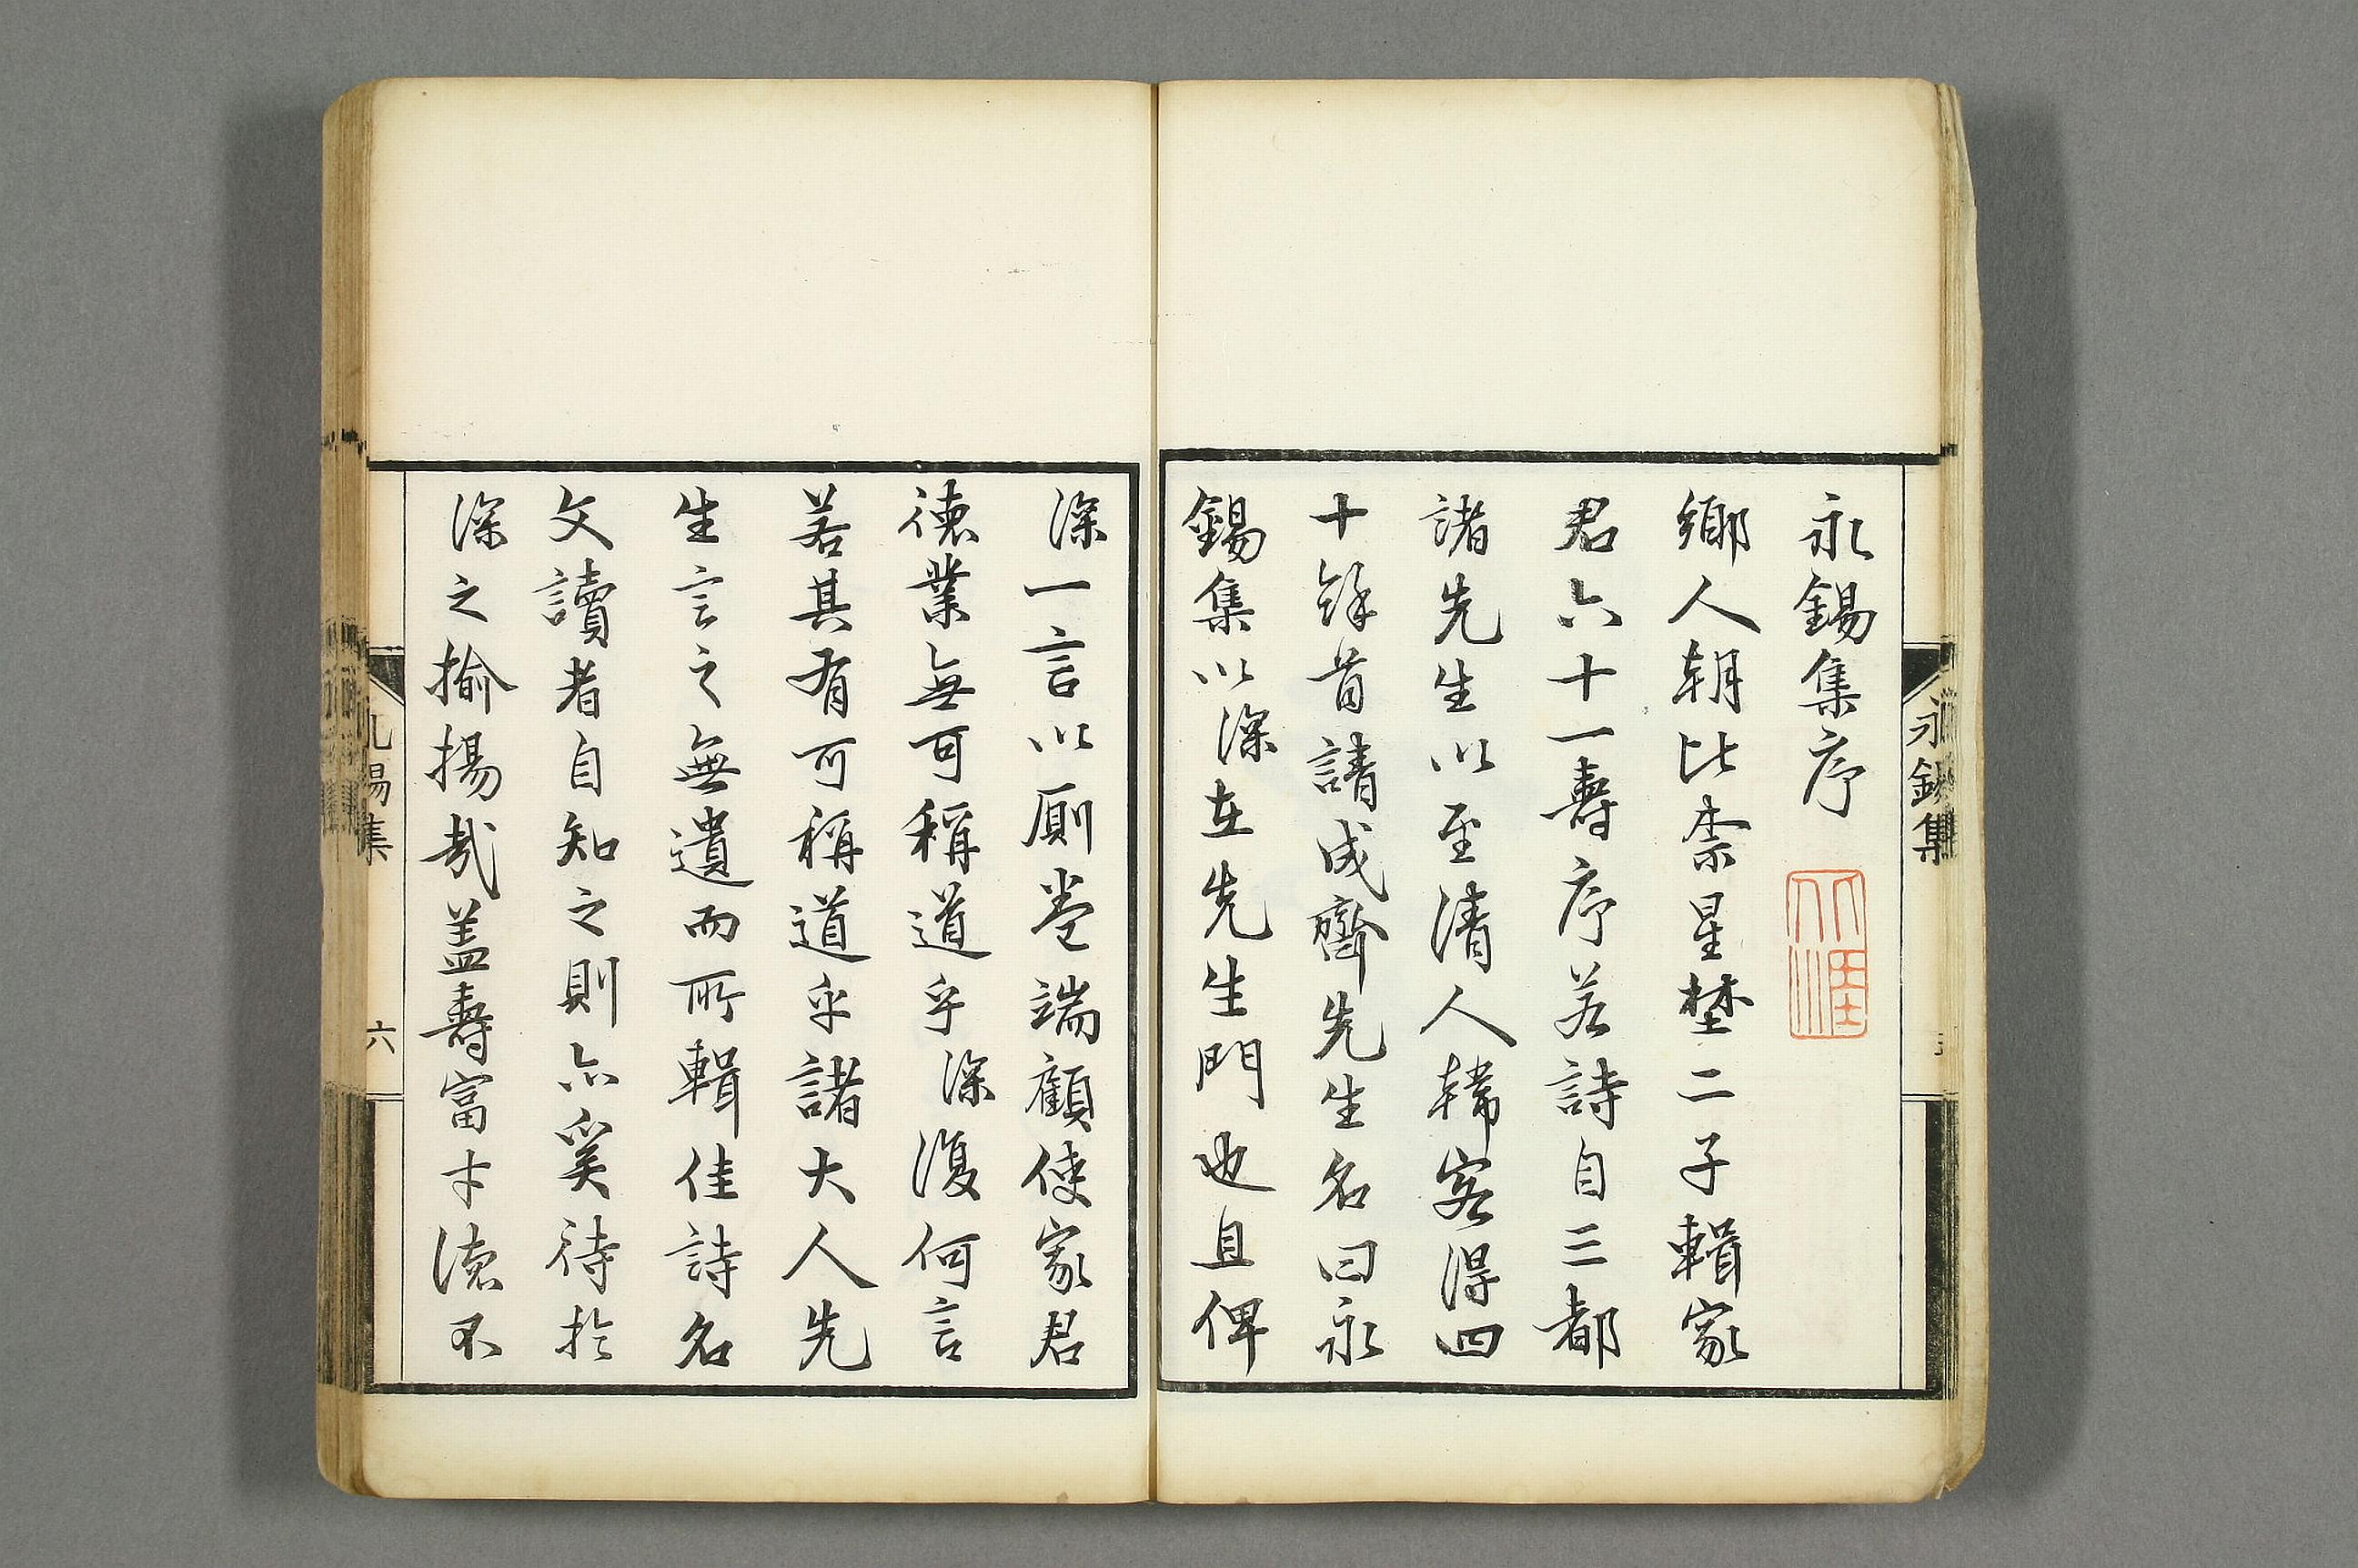 永錫集序
鄉人朝比柰星埜二子輯家
君六十一壽序若詩自三都
諸先生以至清人韓客得四
十餘首請成齋先生名曰永
錫集以深在先生門也且俾
深一言以廁卷端顧使家君
徳業無可稱道乎深復何言
若其有可稱道乎諸大人先
生言之無遺而所輯佳詩名
文讀者自知之則亦奚待於
深之揄揚哉盖壽富才徳不
永錫集
錫集
六